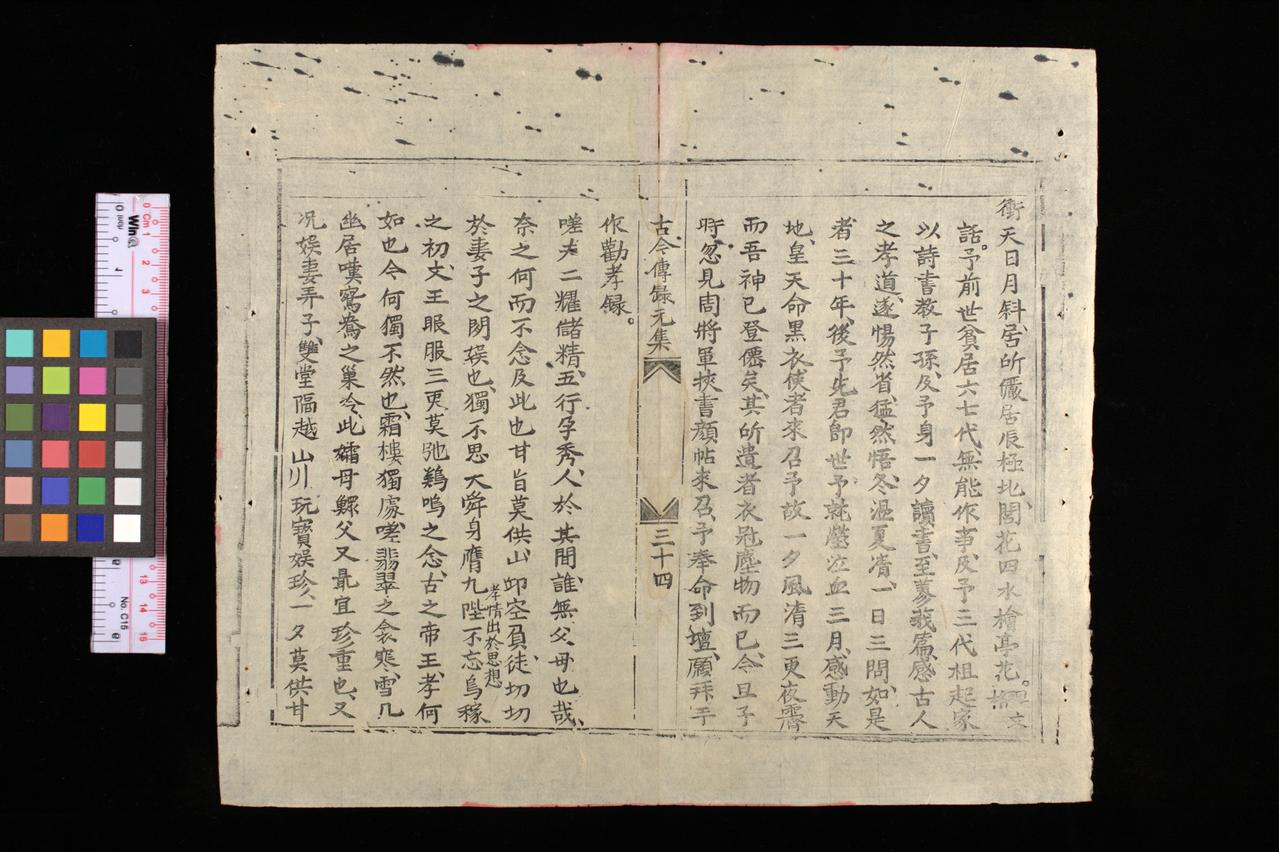 衝天日月斜居所儼居辰極北閣花四水檜亭花。
話。予前世貧居六七代、無能作事、及予三代祖起家
以詩書教子孫、及予身一夕讀書、至蓼莪篇、感古人
之孝道、遂惕然省、猛然悟、冬溫夏凊、一日三問、如是
者三十年、後予先君即世、予就塋泣血三月、感動天
地、皇天命黑衣使者來召予、故一夕風清三更夜霽
而吾神已登僊矣、其所遺者衣冠塵物而已、今旦子
時、忽見周將軍挾書顏帖來召、予奉命到壇、願拜于
古今傳録元集
三十四
作勸孝録。
嗟夫二耀儲精、五行孕秀、人於其間、誰無父母也哉、
奈之何而不念及此也甘旨莫供、山卬空負、徒切切
於妻子之閉娛也、獨不思大舜身膺九陛、不忘烏稼
孝情出於思想
之初、文王眼服三更、莫弛鷄鳴之念、古之帝王、孝何
如也、今何獨不然也、霜樓獨處、嗟翡翠之衾寒、雪几
幽居嘆鴛鴦之巢冷、此孀母鰥父又最宜珍重也、又
况娛妻弄子、雙堂隔越山川玩寶娛珍、一夕莫供甘